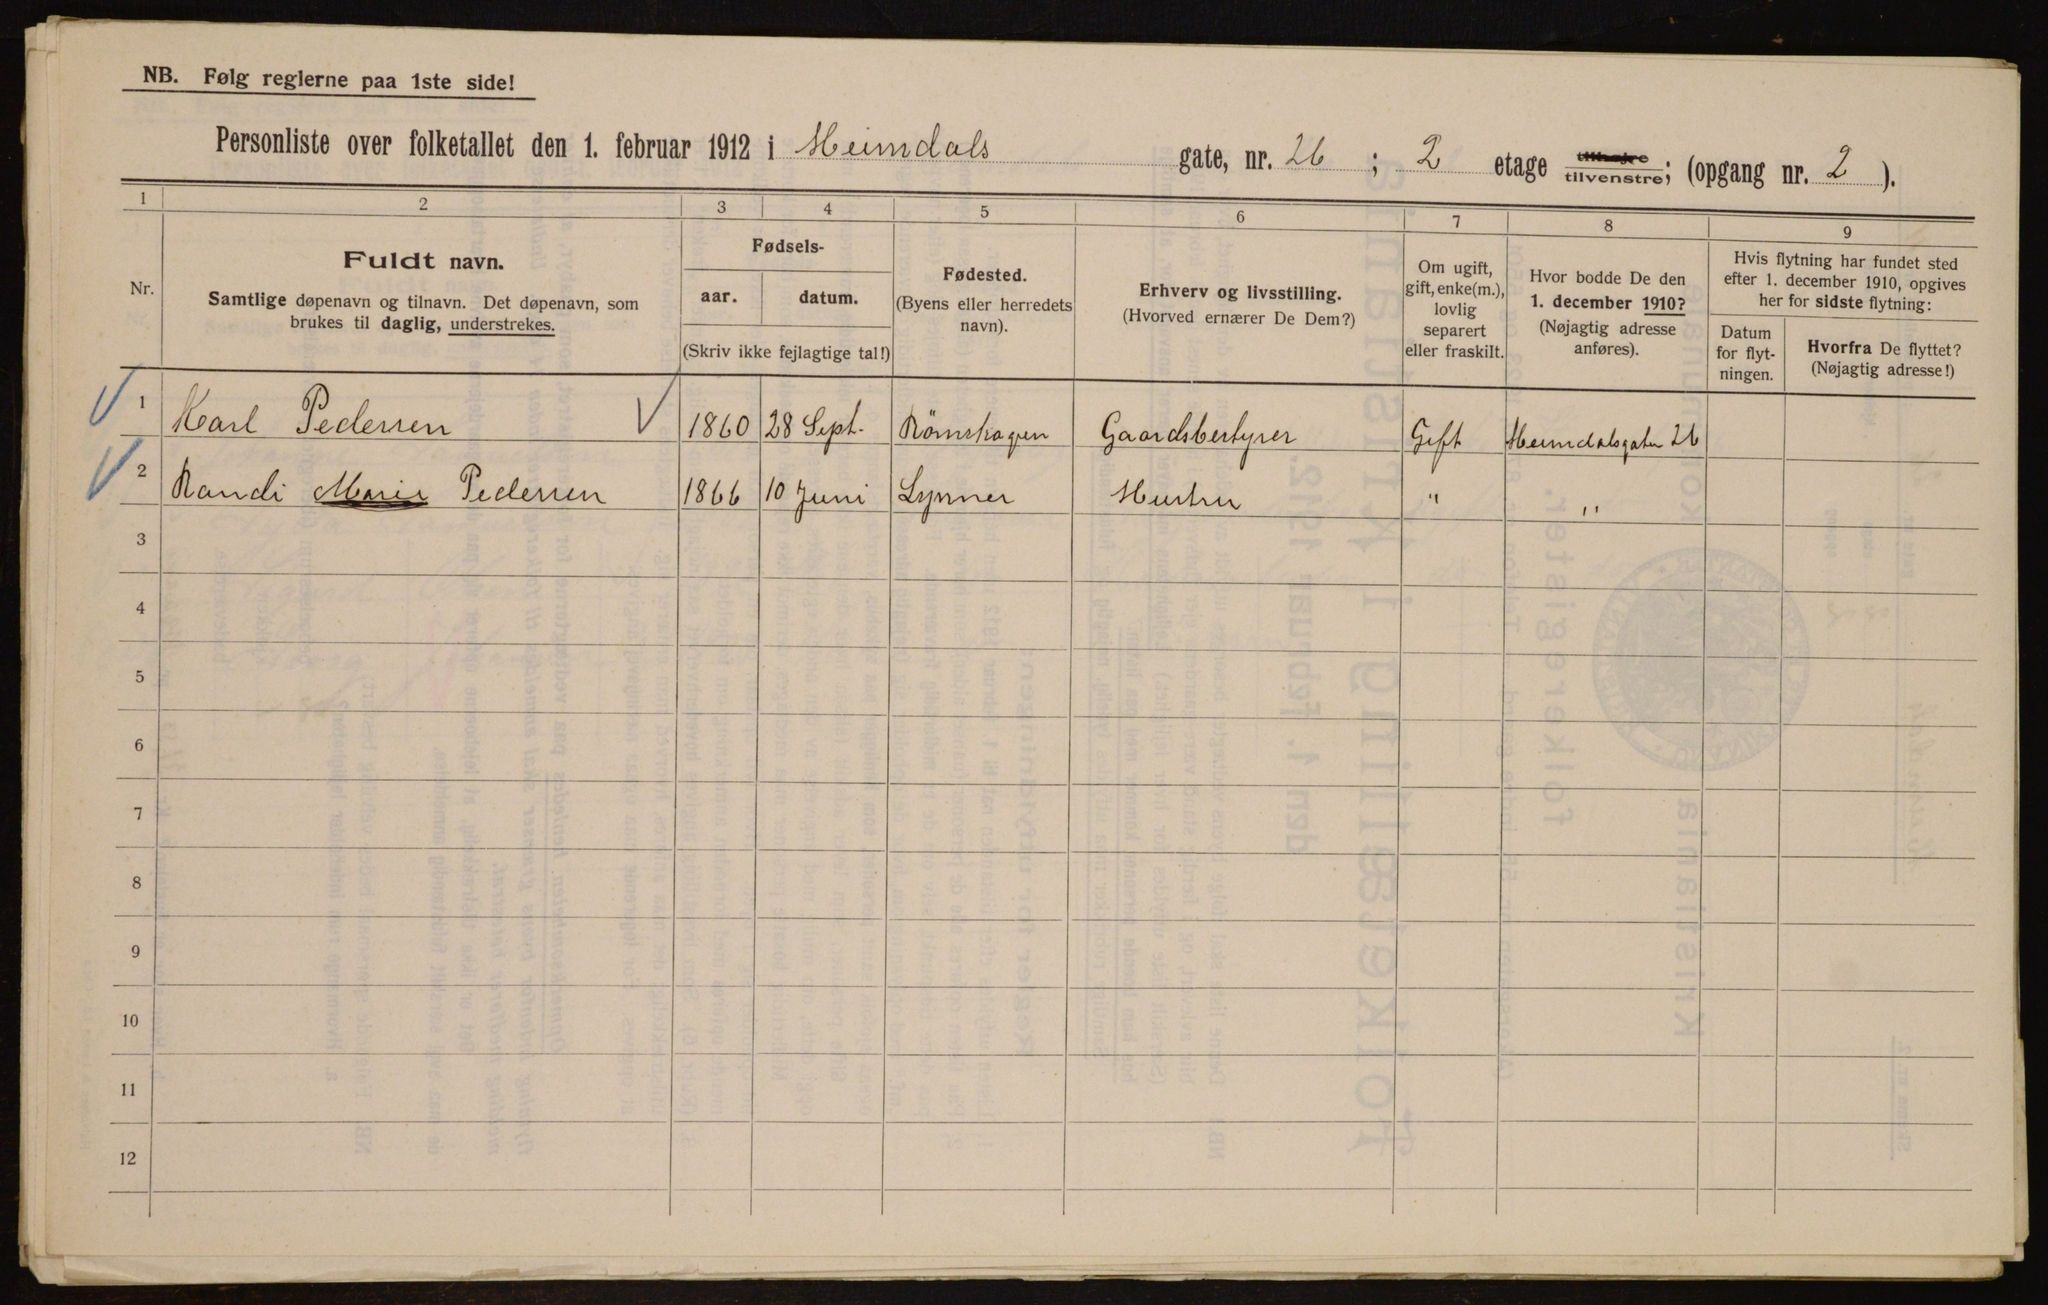 NB. Følg reglerne paa 1ste side!
Personliste over folketallet den 1. februar 1912 i Heimdals gate, nr. 26 ; 2 etage tilhøjre tilvenstre; (opgang nr. 2 ).
1 2 3 4 5 6 7 8 9
Nr.
Fuldt navn.
Samtlige døpenavn og tilnavn. Det døpenavn, som
brukes til daglig, understrekes.
Fødsels-
aar. datum.
(Skriv ikke fejlagtige tal!)
Fødested.
(Byens eller herredets
navn).
Erhverv og livsstilling.
(Hvorved ernærer De Dem?)
Om ugift,
gift, enke(m.),
lovlig
separert
eller fraskilt.
Hvor bodde De den
1. december 1910?
(Nøjagtig adresse
anføres).
Hvis flytning har fundet sted
efter 1. december 1910, opgives
her for sidste flytning:
Datum
for flyt-
ningen.
Hvorfra De flyttet?
(Nøjagtig adresse!)
1 Karl Pedersen 1860 28 Sept. Rømskogen Gaardsbestyrer Gift Heimdalsgaten 26
2 Randi Marie Pedersen 1866 10 Juni Lynner Hustru " "
3
4
5
6
7
8
9
10
11
12